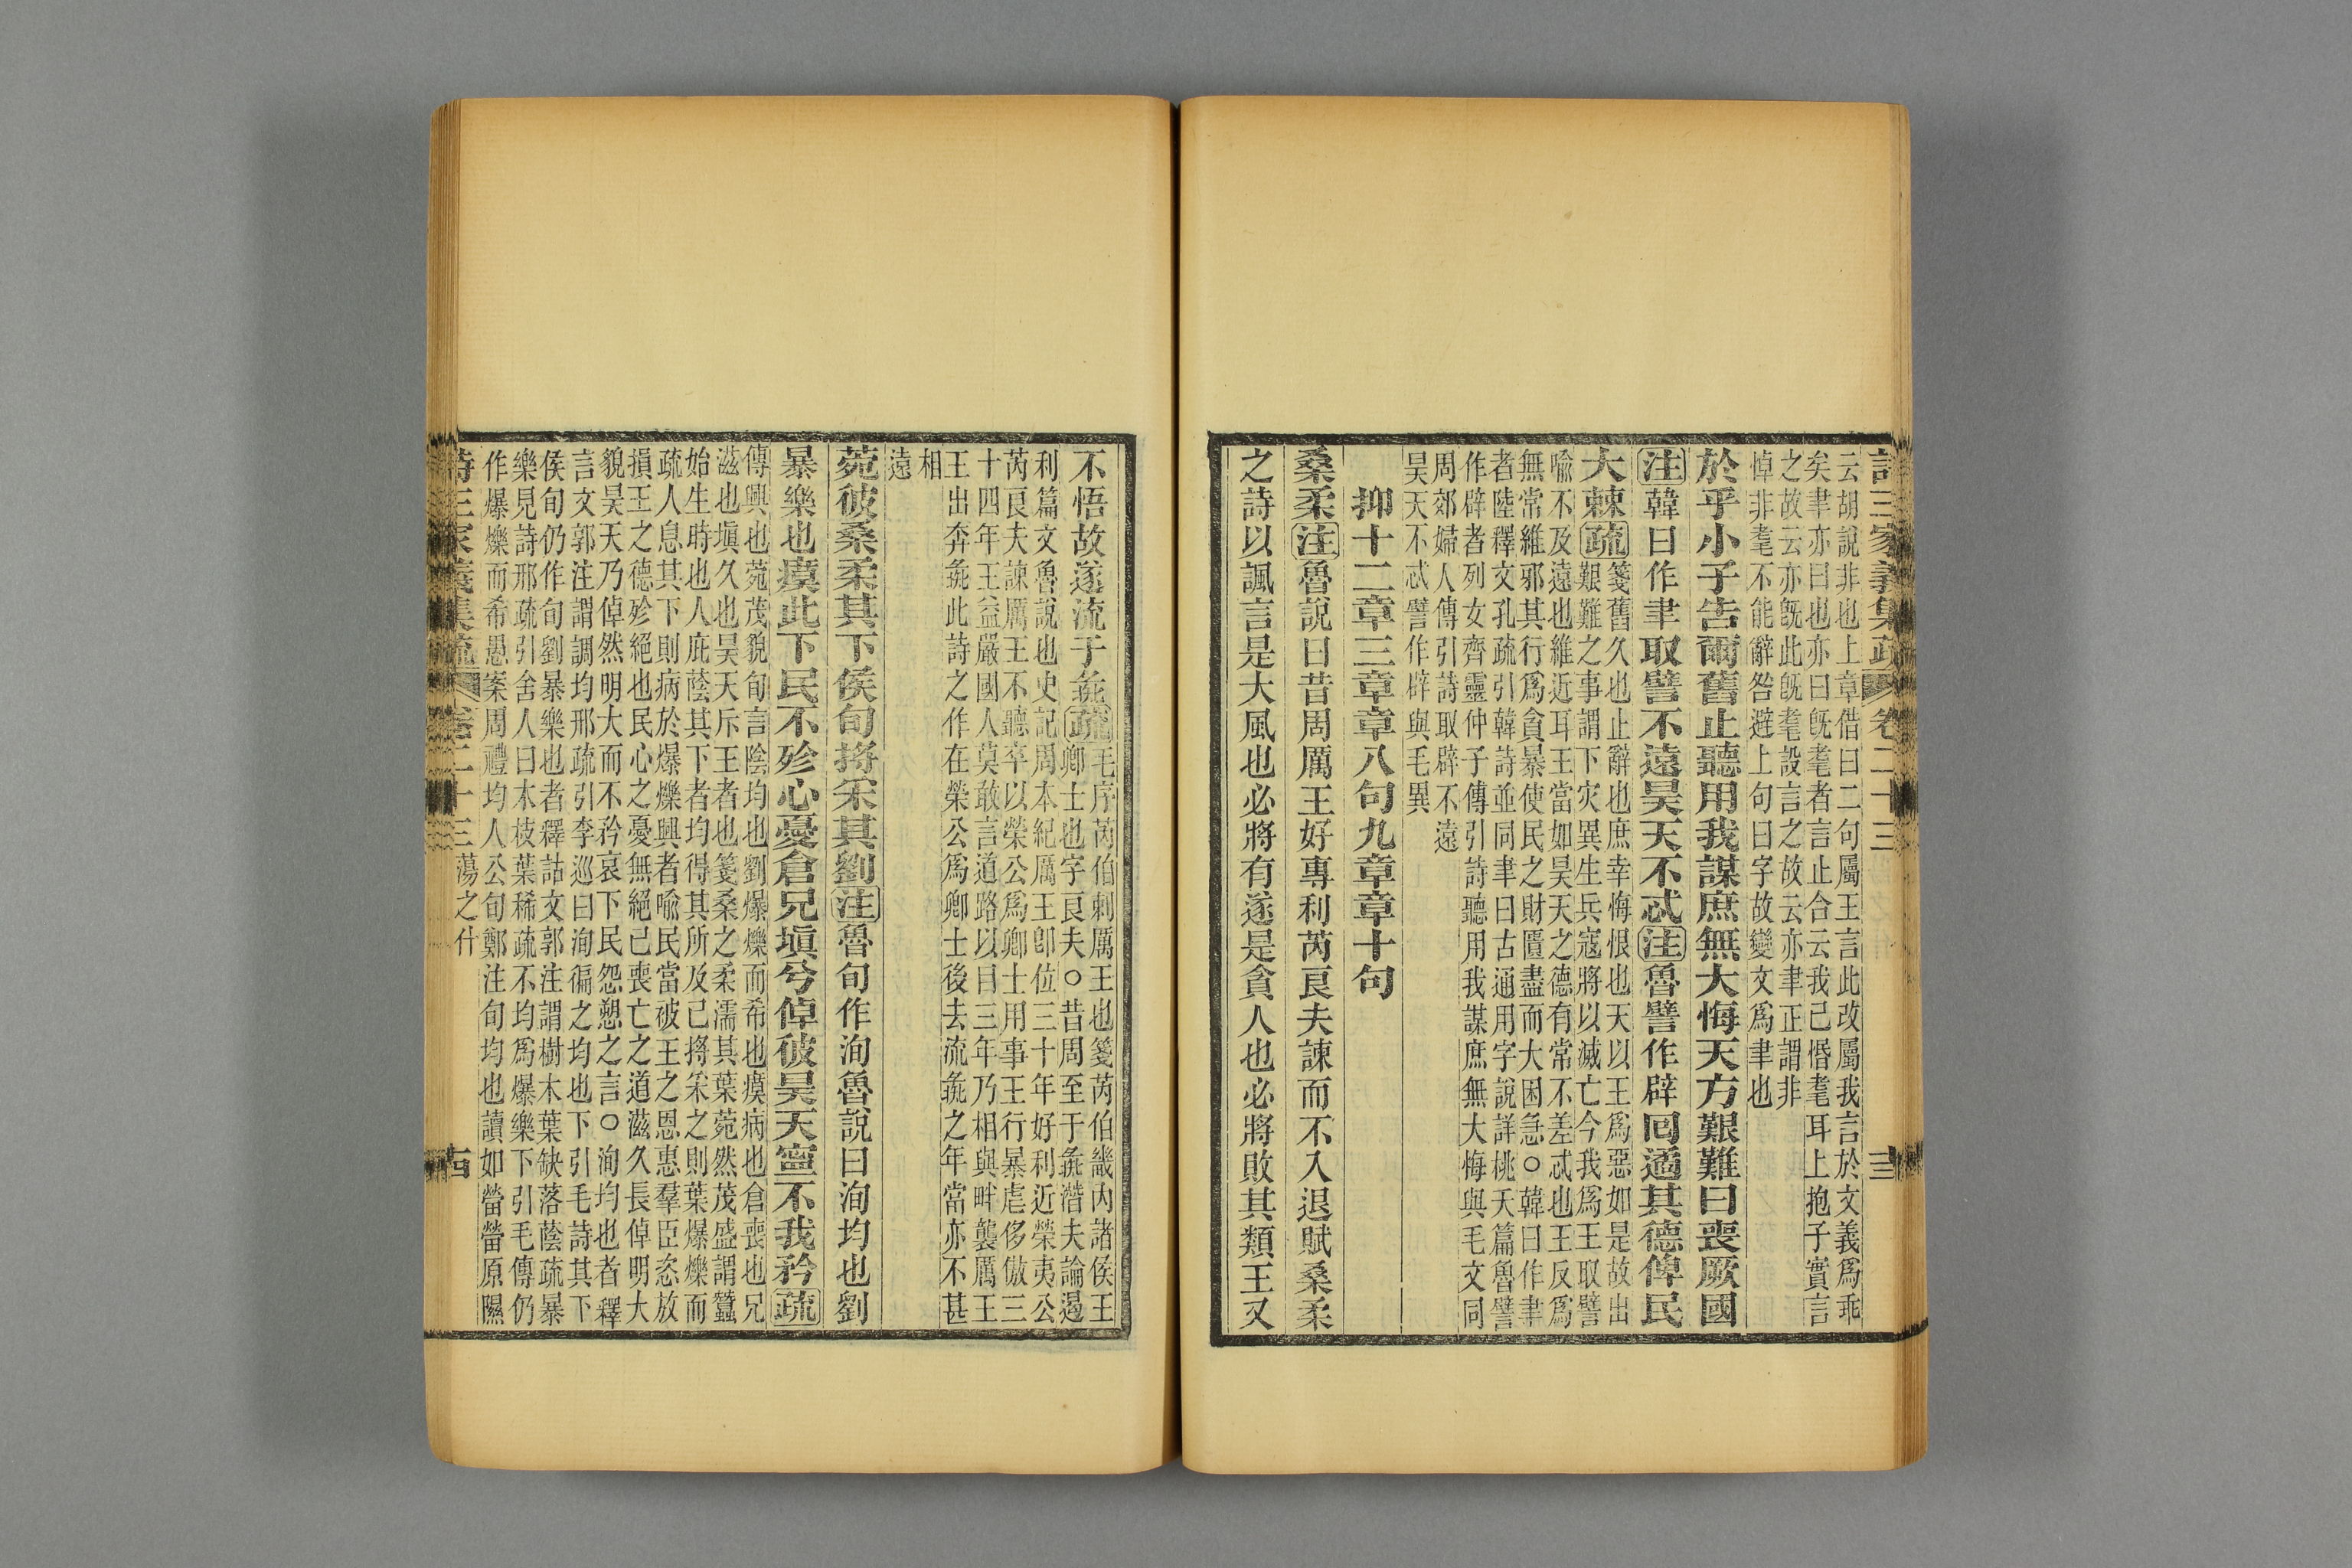 詩三家義集疏 卷二十三
云胡說非也上章借曰二句屬王言此改屬我言於文義爲乖
矣聿亦曰也亦曰旣耄者言止合云我已惛耄耳上抱子實言
之故云亦旣此旣耄設言之故云亦聿正謂非
悼非耄不能辭咎避上句曰字故變文爲聿也
於乎小子告爾舊止聽用我謀庶無大悔天方艱難曰喪厥國
注韓曰作聿取譬不遠昊天不忒注魯譬作辟回遹其德俾民
大棘疏
箋舊久也止辭也庶幸悔恨也天以王爲惡如是故出
艱難之事謂下灾異生兵寇將以滅亡今我爲王取譬
喻不及遠也維近耳王當如昊天之德有常不差忒也王反爲
無常維邪其行爲貪暴使民之財匱盡而大困急○韓曰作聿
者陸釋文孔疏引韓詩並同聿曰古通用字說詳桃夭篇魯譬
作辟者列女齊靈仲子傳引詩聽用我謀庶無大悔與毛文同
周郊婦人傳引詩取辟不遠
昊天不忒譬作辟與毛異
抑十二章三章章八句九章章十句
桑柔注魯說曰昔周厲王好專利芮良夫諫而不入退賦桑柔
之詩以諷言是大風也必將有遂是貪人也必將敗其類王又
不悟故遂流于彘疏
毛序芮伯刺厲王也箋芮伯畿內諸侯王
卿士也字良夫○昔周至于彘潛夫論遏
利篇文魯說也史記周本紀厲王卽位三十年好利近榮夷公
芮良夫諫厲王不聽卒以榮公爲卿士用事王行暴虐侈傲三
十四年王益嚴國人莫敢言道路以目三年乃相與畔襲厲王
王出奔彘此詩之作在榮公爲卿士後去流彘之年當亦不甚
相
遠
菀彼桑柔其下侯旬捋采其劉注魯旬作洵魯說曰洵均也劉
暴樂也瘼此下民不殄心憂倉兄塡兮倬彼昊天寧不我矜疏
傳興也菀茂貌旬言陰均也劉爆爍而希也瘼病也倉喪也兄
滋也塡久也昊天斥王者也箋桑之柔濡其葉菀然茂盛謂蠶
始生時也人庇蔭其下者均得其所及已捋采之則葉爆爍而
疏人息其下則病於爆爍興者喻民當被王之恩惠羣臣恣放
損王之德殄絕也民心之憂無絕已喪亡之道滋久長倬明大
貌昊天乃倬然明大而不矜哀下民怨愬之言○洵均也者釋
言文郭注謂調均邢疏引李巡曰洵徧之均也下引毛詩其下
侯旬仍作旬劉暴樂也者釋詁文郭注謂樹木葉缺落蔭疏暴
樂見詩邢疏引舍人曰木枝葉稀疏不均爲爆樂下引毛傳仍
作爆爍而希愚案周禮均人公旬鄭注旬均也讀如㽦㽦原隰
詩三家義集疏 卷二十三 蕩之什